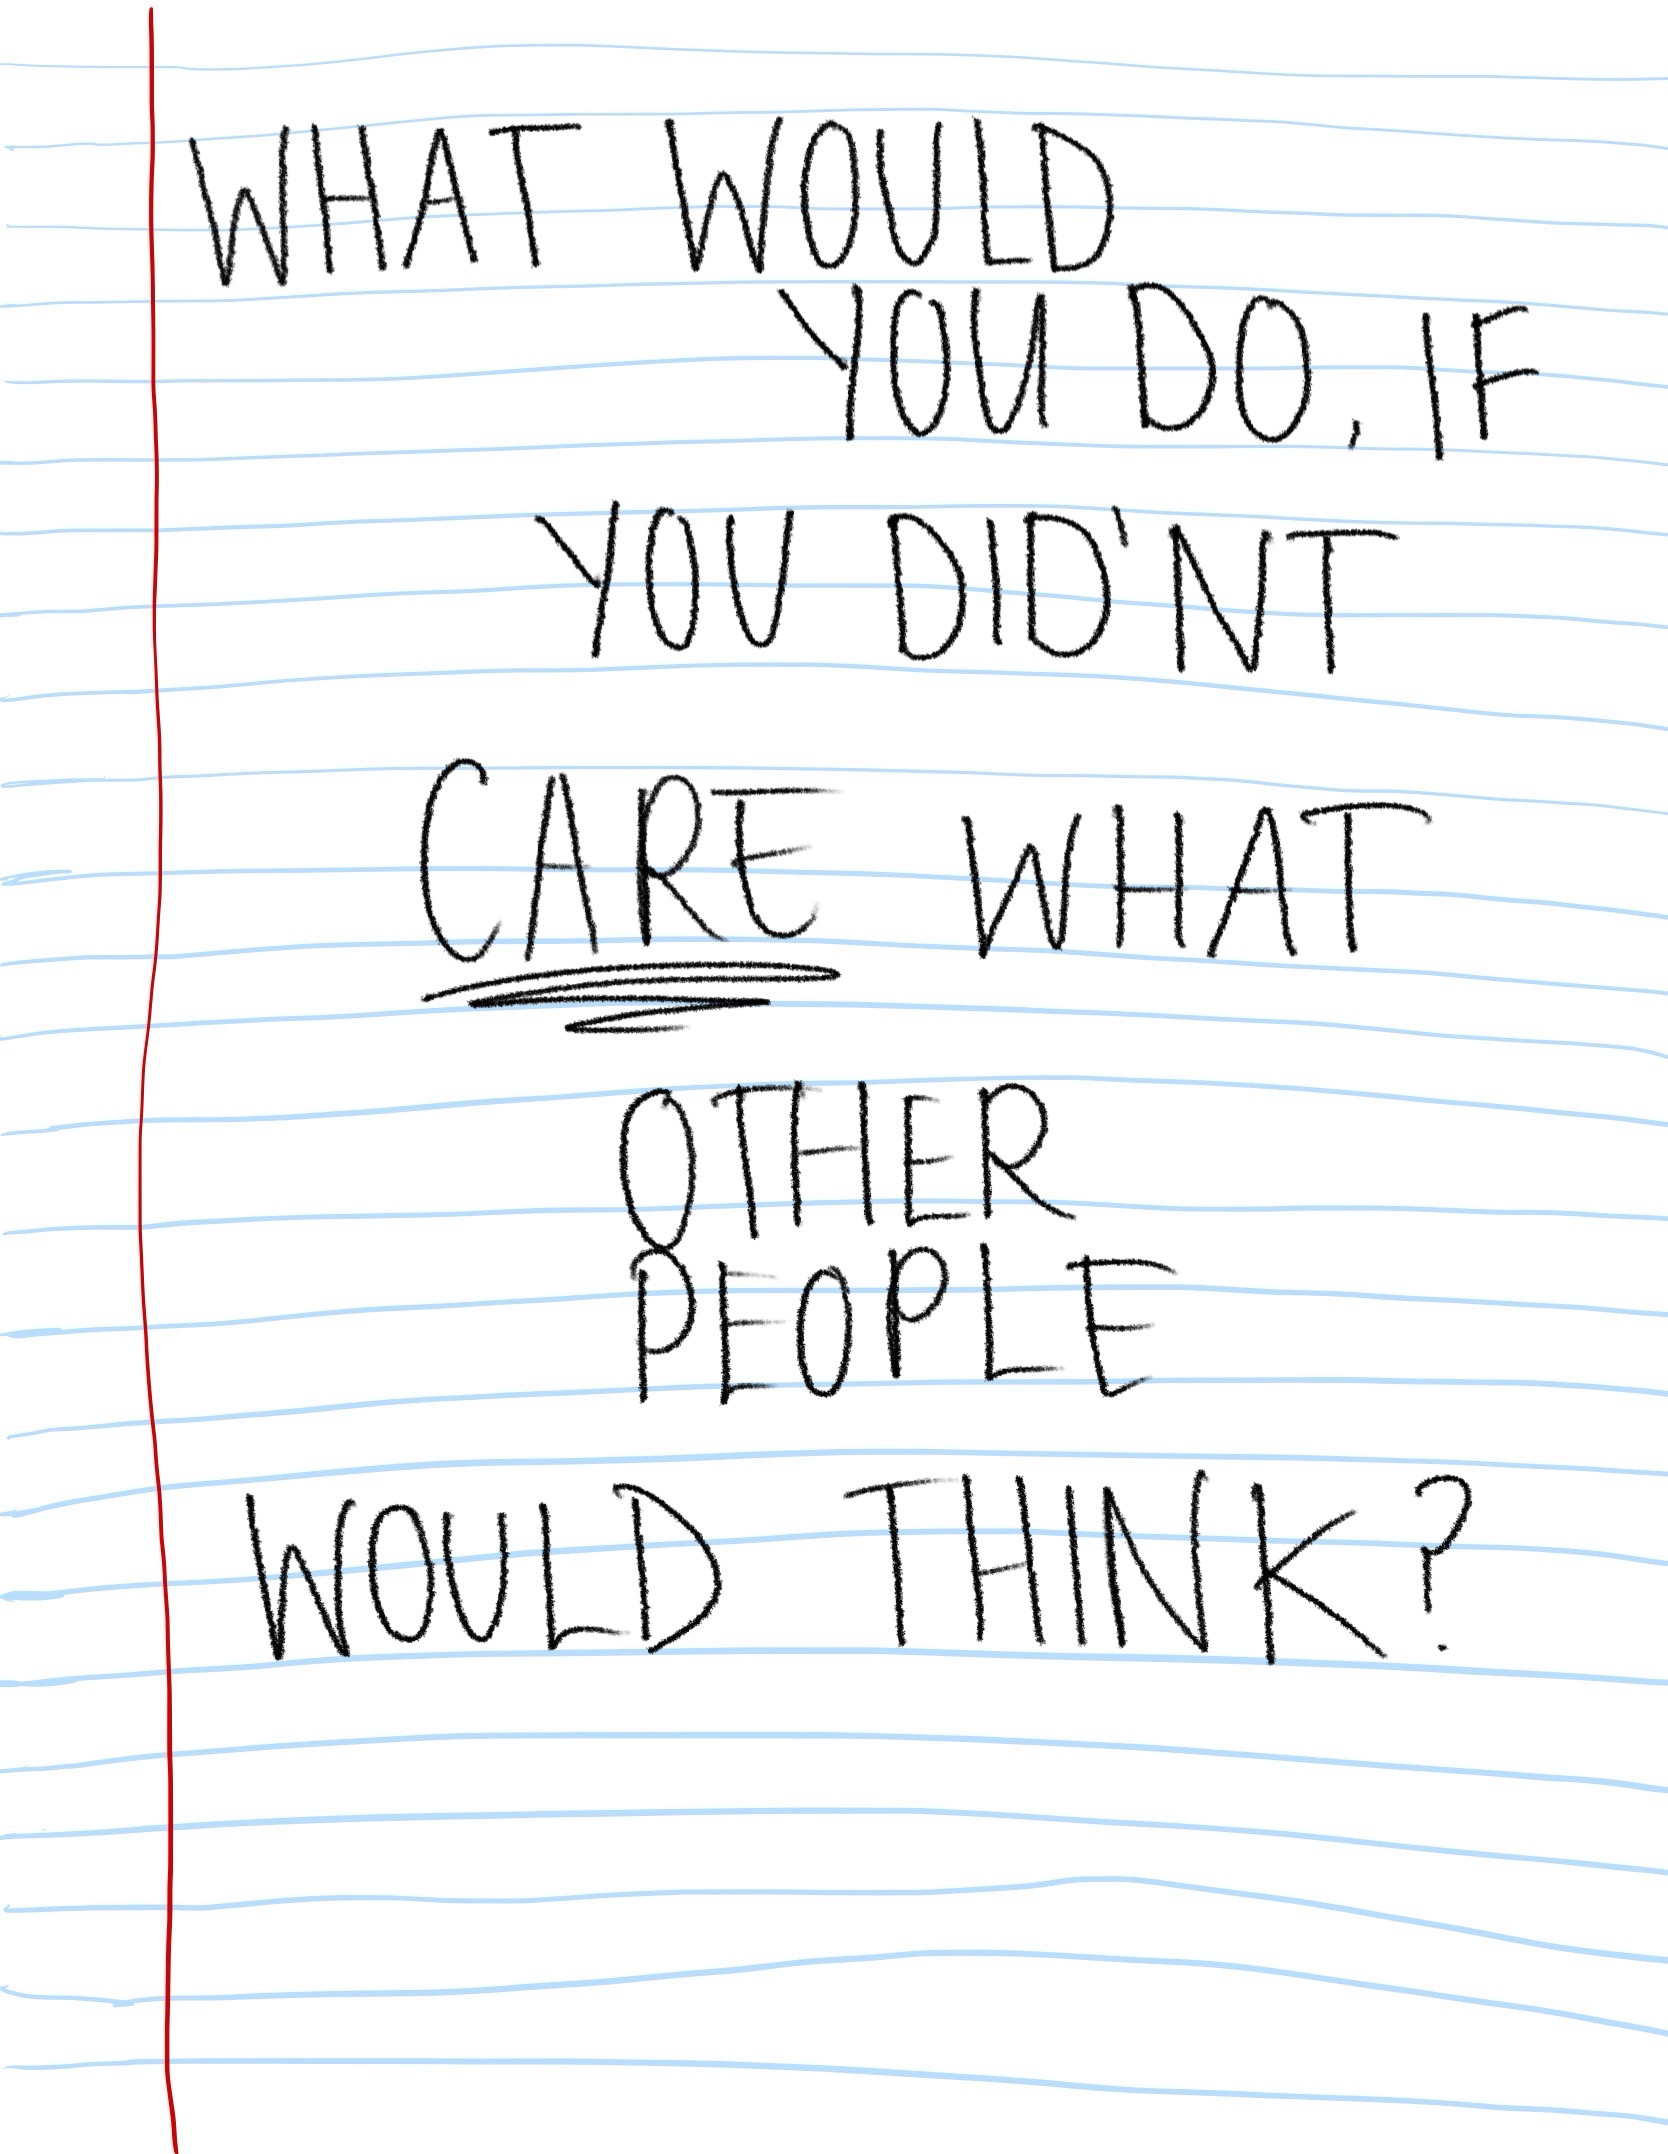 WHAT WOULD
YOU DO, IF
YOU DID'NT
CARE WHAT
OTHER
PEOPLE
WOULD THINK?